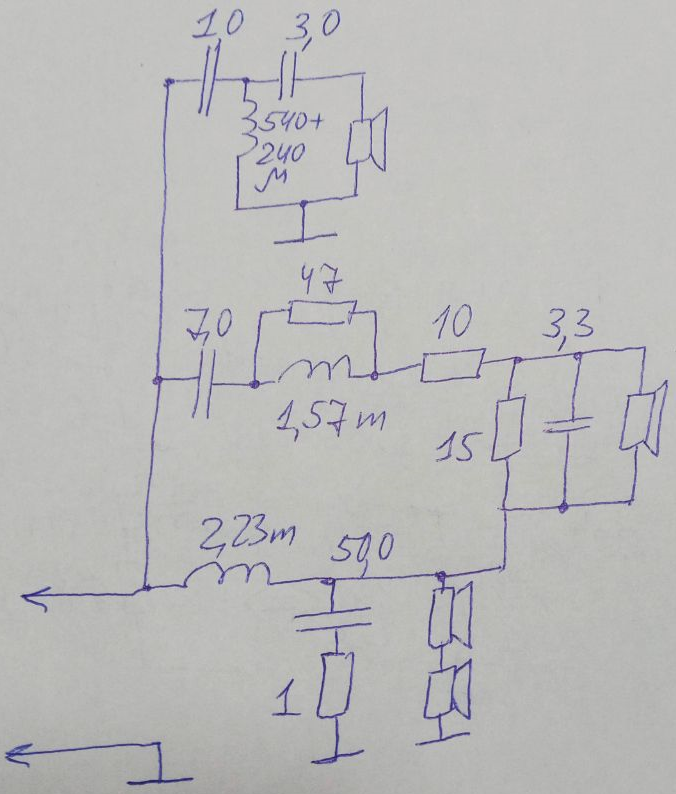 1,0
3,0
540+
240
м
47
7,0
10
3,3
1,57m
15
2,23m
50,0
1